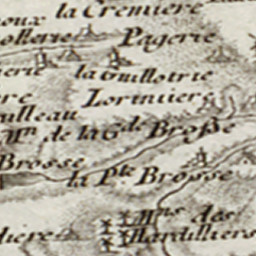 la Cremiere
oux
ollerie Pagerie
erie la Guillotrie
re Lormiere
ulleau
Mⁿ de la Gde Brosse
Brosse
la Pte Brosse
Mins des
diere Mardilliers